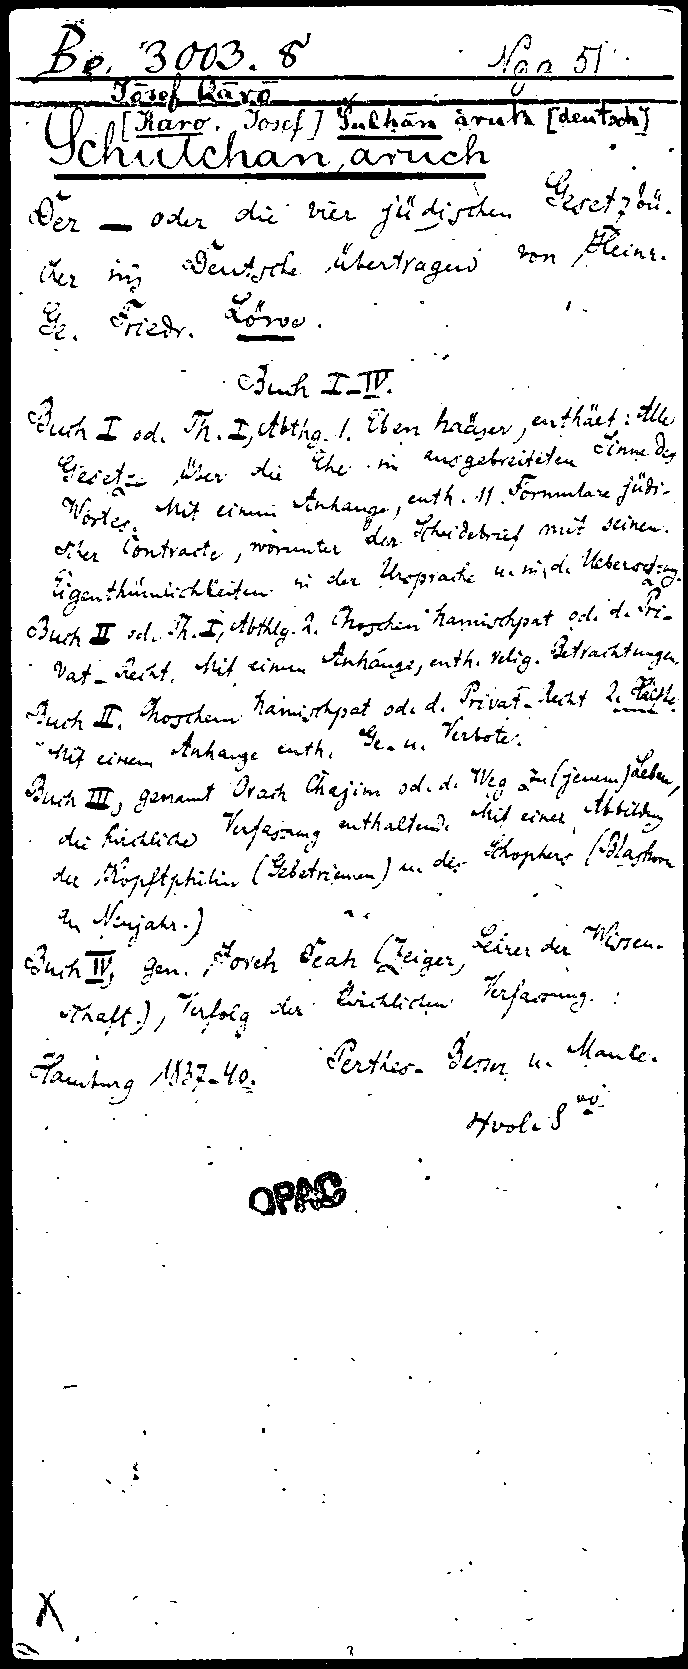 Be. 3003. 8 Nga 51
Josef Karo
[Karo. Josef] Šulḥān ārūk [deutsch]
Schulchan, aruch
Der — oder die vier jüdischen Gesetzbü-
cher ins Deutsche übertragen von Heinr.
Ge. Friedr. Löwe.
Buch I-IV.
Buch I od. Th. I, Abthg. 1. Eben haäser, enthäet: Alle
Gesetze über die Ehe im ausgebreiteten Sinne des
Wortes. Mit einem Anhange, enth. 11 Formulare jüdi-
scher Contracte, worunter der Scheidebrief mit seinen
Eigenthümlichkeiten in der Ursprache u. in d. Uebersetzung.
Buch II od. Th. I, Abthlg. 2. Choschen hamischpat od. d. Pri-
vat-Recht. Mit einem Anhange, enth. relig. Betrachtungen.
Buch II. Choschem hamischpat od. d. Privat-Recht 2. Hälfte.
Mit einem Anhange enth. Ge- u. Verbote.
Buch III, genannt Orach Chajim od. d. Weg zu (jenem) Leben,
die kirchliche Verfassung enthaltend. Mit einer Abbildung
der Kopftphilin (Gebetriemen) u. des Schophers (Blashorn
zu Neujahr.)
Buch IV, gen. Joreh Deah (Zeiger, Lehrer der Wissen-
schaft.), Verfolg der kirchlichen Verfassung.
Hamburg 1837-40. Perthes- Besser u. Mauke.
4 vol. 8vo.
OPAC
X